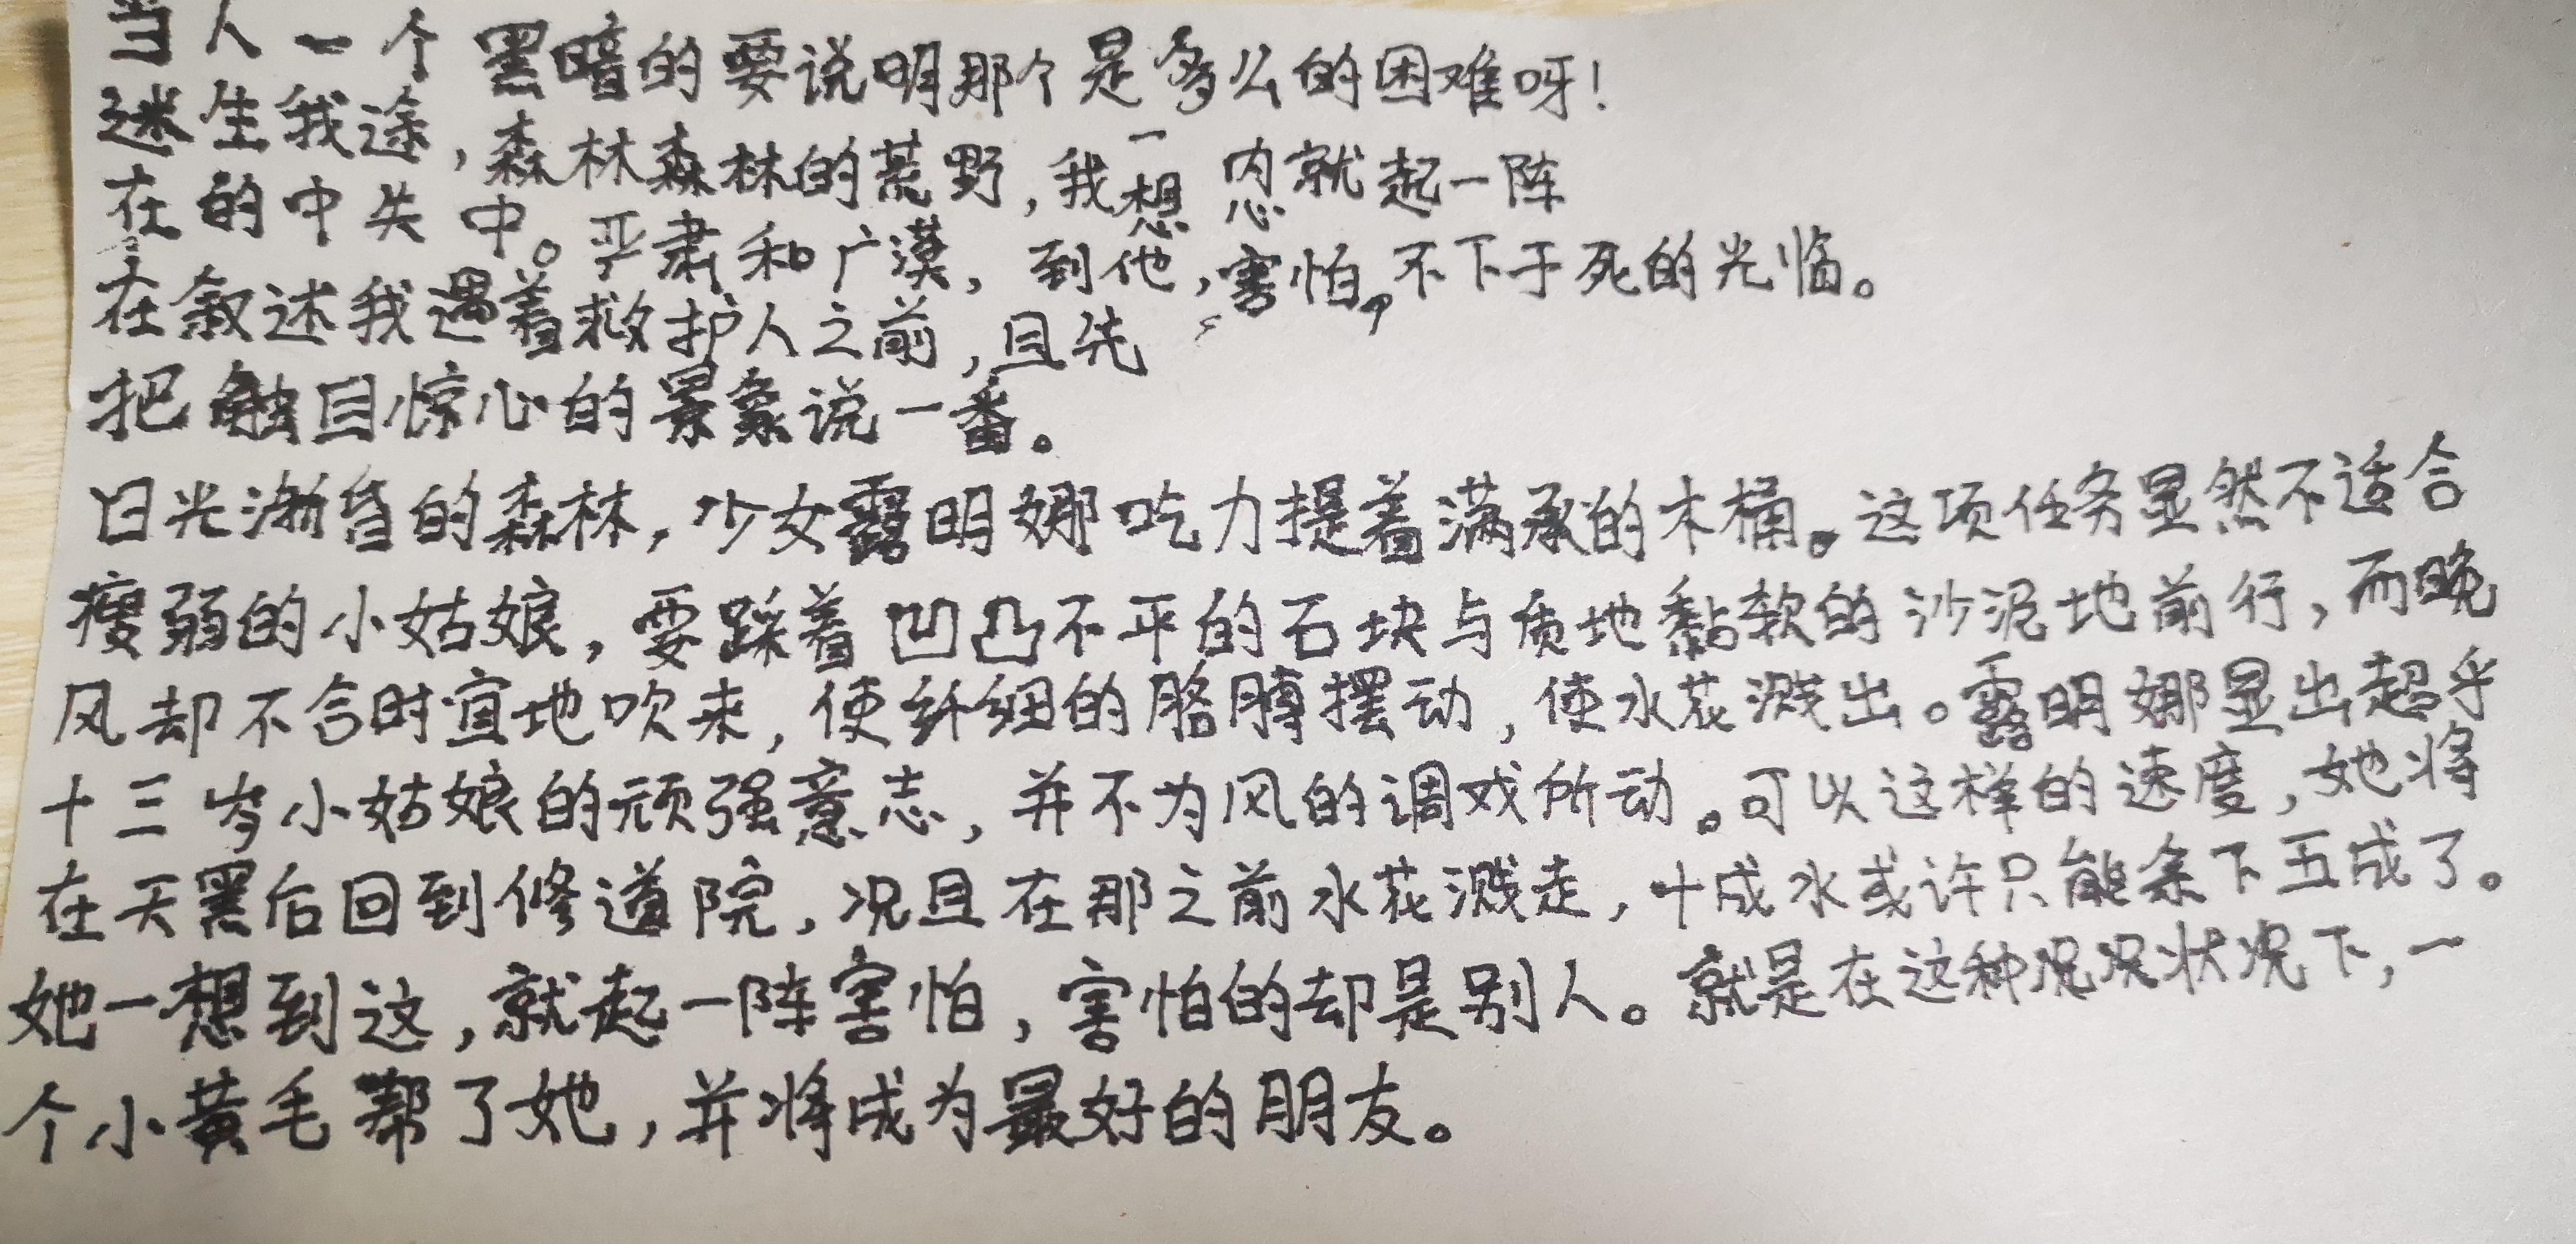 当人一个黑暗的要说明那个是多么的困难呀！
迷生我途，森林森林的荒野，我一想内心就起一阵
在的中失中。严肃和广漠，到他，害怕，不下于死的光临。
在叙述我遇着救护人之前，且先
把触目惊心的景象说一番。
日光渐昏的森林，少女露明娜吃力提着满承的木桶。这项任务显然不适合
瘦弱的小姑娘，要踩着凹凸不平的石块与质地黏软的沙泥地前行，而晚
风却不合时宜地吹来，使纤细的胳膊摆动，使水花溅出。露明娜显出超乎
十三岁小姑娘的顽强意志，并不为风的调戏所动。可以这样的速度，她将
在天黑后回到修道院，况且在那之前水花溅走，十成水或许只能余下五成了。
她一想到这，就起一阵害怕，害怕的却是别人。就是在这种况况状况下，一
个小黄毛帮了她，并将成为最好的朋友。